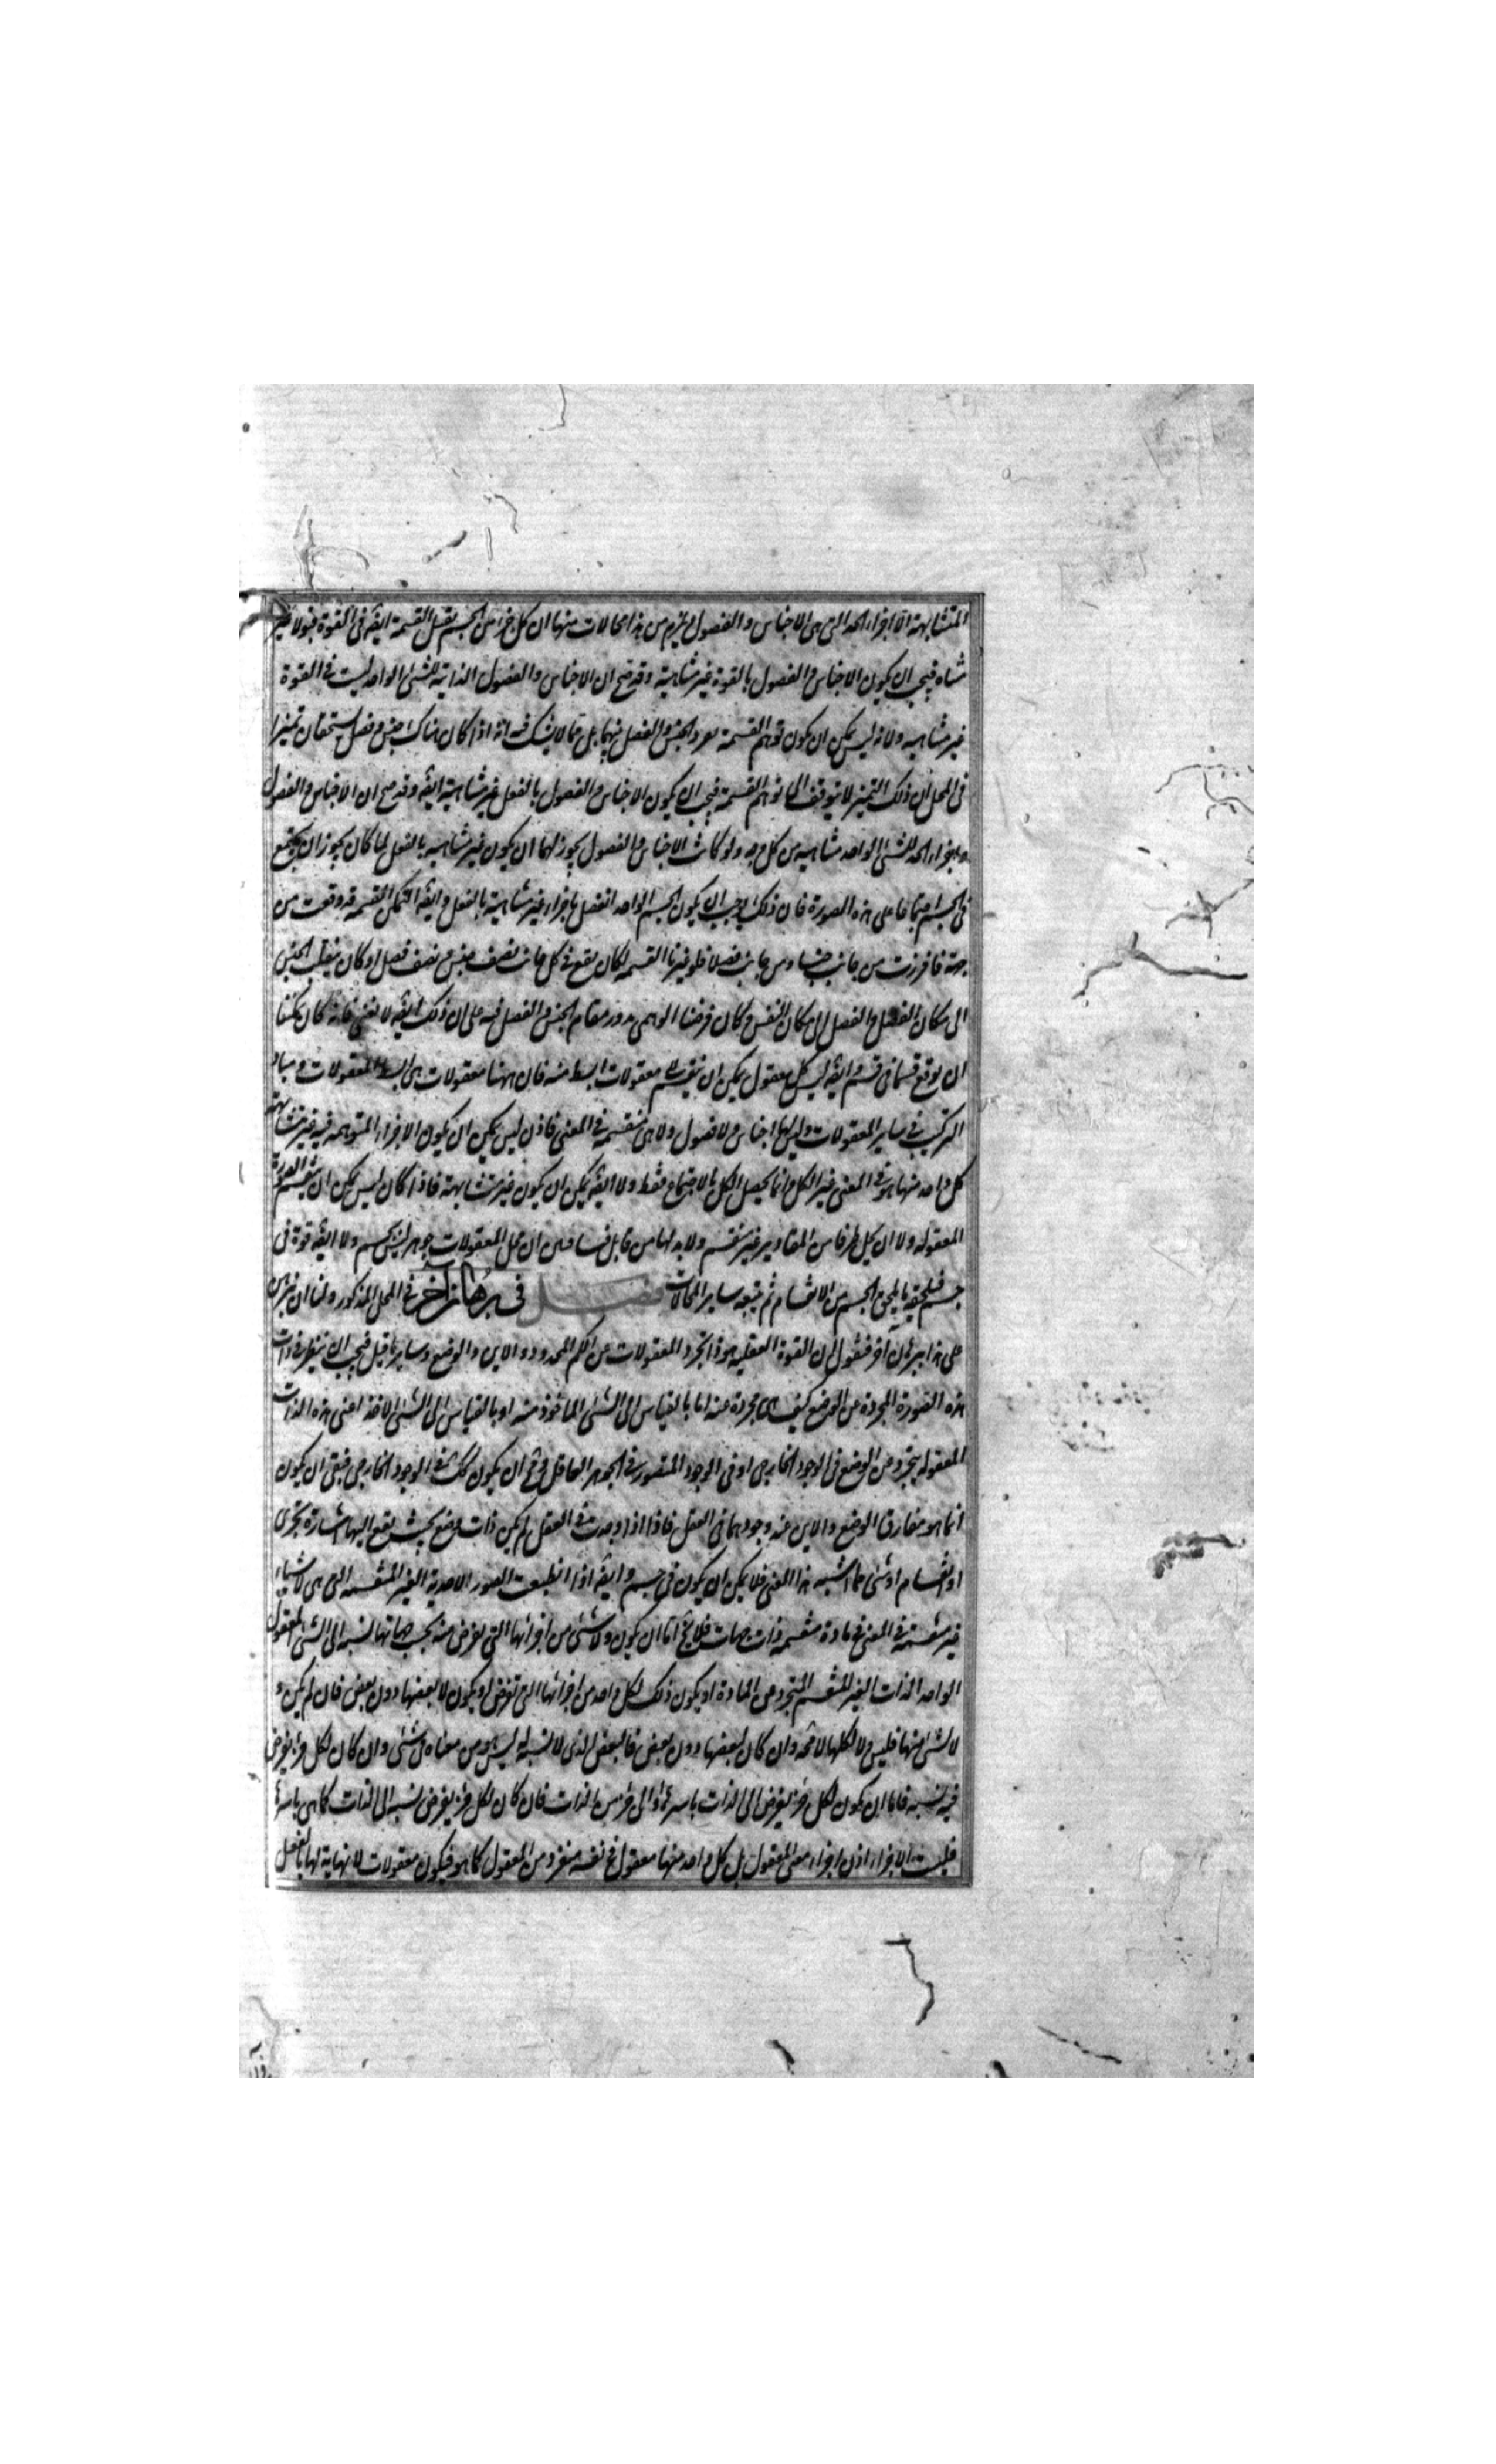 المتشابهة الا اجزاء الحد التى هى الاجناس و الفصول و يلزم من هذا محالات منها ان كل جزء من الجسم يقبل القسمة ايضه فى القوة قبولا غير
متناه فيجب ان يكون الاجناس و الفصول بالقوة غير متناهية وقد صح ان الاجناس والفصول الذاتية للشئ الواحد ليست فى القوة
غير متناهيه ولانه ليس يمكن ان يكون توهم القسمة يفرد الجنس و الفصل بينهما بل مما لا يشك فيه انه اذا كان هناك جنس و فصل يستحقان تميزا
فى المحل ان ذلك التميز لا يتوقف الى توهم القسمة فيجب ان يكون الاجناس و الفصول بالفعل غير متناهية ايضه وقد صح ان الاجناس و الفصول
و اجزاء الحد للشئ الواحد متناهيه من كل وجه ولو كانت الاجناس و الفصول يجوز لها ان يكون غير متناهيه بالفعل لما كان يجوز ان يجتمع
فى الجسم اجتماعا على هذه الصورة فان ذلك يوجب ان يكون الجسم الواحد انفصل باجزاء غير متناهية بالفعل و ايضه لتكن القسمة قد وقعت من
جهة فافرزت من جانب جنسا ومن جانب فصلا فلو غيرنا القسمه لكان يقع فى كل جانب نصف جنس و نصف فصل او كان ينقلب الجنس
الى مكان الفصل و الفصل الى مكان الجنس و كان فرضنا الوهمى يدور مقام الجنس و الفصل فيه على ان ذلك ايضه لا يغنى فانه كان يمكننا
ان نوقع قسما فى قسم و ايضه ليس كل معقول يمكن ان يقسم لا معقولات ابسط منه فان ههنا معقولات هى ابسط المعقولات و مباد
التركيب فى ساير المعقولات و ليس لها اجناس و لا فصول و لا هى منقسمه فى المعنى فاذن ليس يمكن ان يكون الاجزاء المتوهمه فيه غير متشابهة
كل واحد منها هو فى المعنى غير الكل و انما يحصل الكل بالاجتماع فقط ولا ايضه يمكن ان يكون غير متشابهة فاذا كان ليس يمكن ان ينقسم الصورة
المعقوله ولا ان يحل طرفا من المقادير غير منقسم ولابد لها من قابل فينا فبين ان محل المعقولات جوهر ليس بجسم ولا ايضه قوة فى
جسم فيلحقه ما يلحق الجسم من الانقسام ثم يتبعه ساير المحالات فصل فى برهان آخر فى المحل المذكور ولنا ان نبرهن
على هذا ببرهان آخر فنقول ان القوة العقليه هو ذا تجرد المعقولات عن الكم المحدود و الاين و الوضع و ساير ما قيل فيجب ان ننظر فى ذات
هذه الصورة المجردة عن الوضع كيف هى مجردة عنه اما بالقياس الى الشئ الماخوذ منه او بالقياس الى الشئ الاخذ اعنى هذه الذات
المعقوله يتجرد عن الوضع فى الوجود الخارجى او فى الوجود المتصور فى الجوهر العاقل و مح ان يكون كك فى الوجود الخارجى فبقى ان يكون
انما هو مفارق الوضع و الاين عند وجودهما فى العقل فاذا اذا وجدت فى العقل لم يكن ذات وضع بحيث يقع اليها اشارة تجزى
او انقسام او شئ مما اشبه هذا المعنى فلا يمكن ان يكون فى جسم و ايضه اذا انطبعت الصور الاحدية الغير المنقسمه التى هى لاشياء
غير منقسمة فى المعنى فى مادة منقسمه ذات جهات فلا يخ اما ان يكون ولا شئ من اجزائها التى تفرض منه بحسب جهاتها نسبه الى الشئ المعقول
الواحد الذات الغير المنقسم المتجرد عن المادة او يكون ذلك لكل واحد من اجزائها التى تفرض او يكون لا بعضها دون بعض فان لم يكن و
لا لشئ منها فليس ولا لكلها لا محه و ان كان لبعضها دون بعض فالبعض الذى لا نسبة له ليس هو من معناه فى شئ و ان كان لكل جزء يفرض
فيه نسبه فاما ان يكون لكل جزء يفرض الى الذات باسرها او الى جزء من الذات فان كان لكل جزء يفرض نسبه الى الذات كما هى باسرها
فليست الاجزاء اذن اجزاء معنى المعقول بل كل واحد منها معقول فى نفسه منفرد من المعقول كما هو فيكون معقولات لا نهاية لها بالفعل